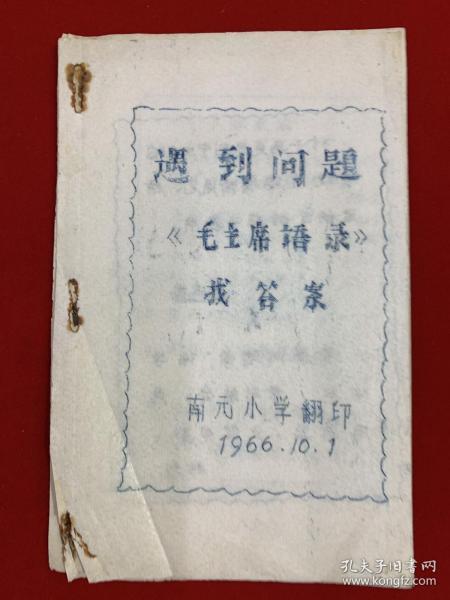 遇到问题
《毛主席语录》
找答案
南元小学翻印
1966.10.1
孔夫子旧书网
www.kongfz.com